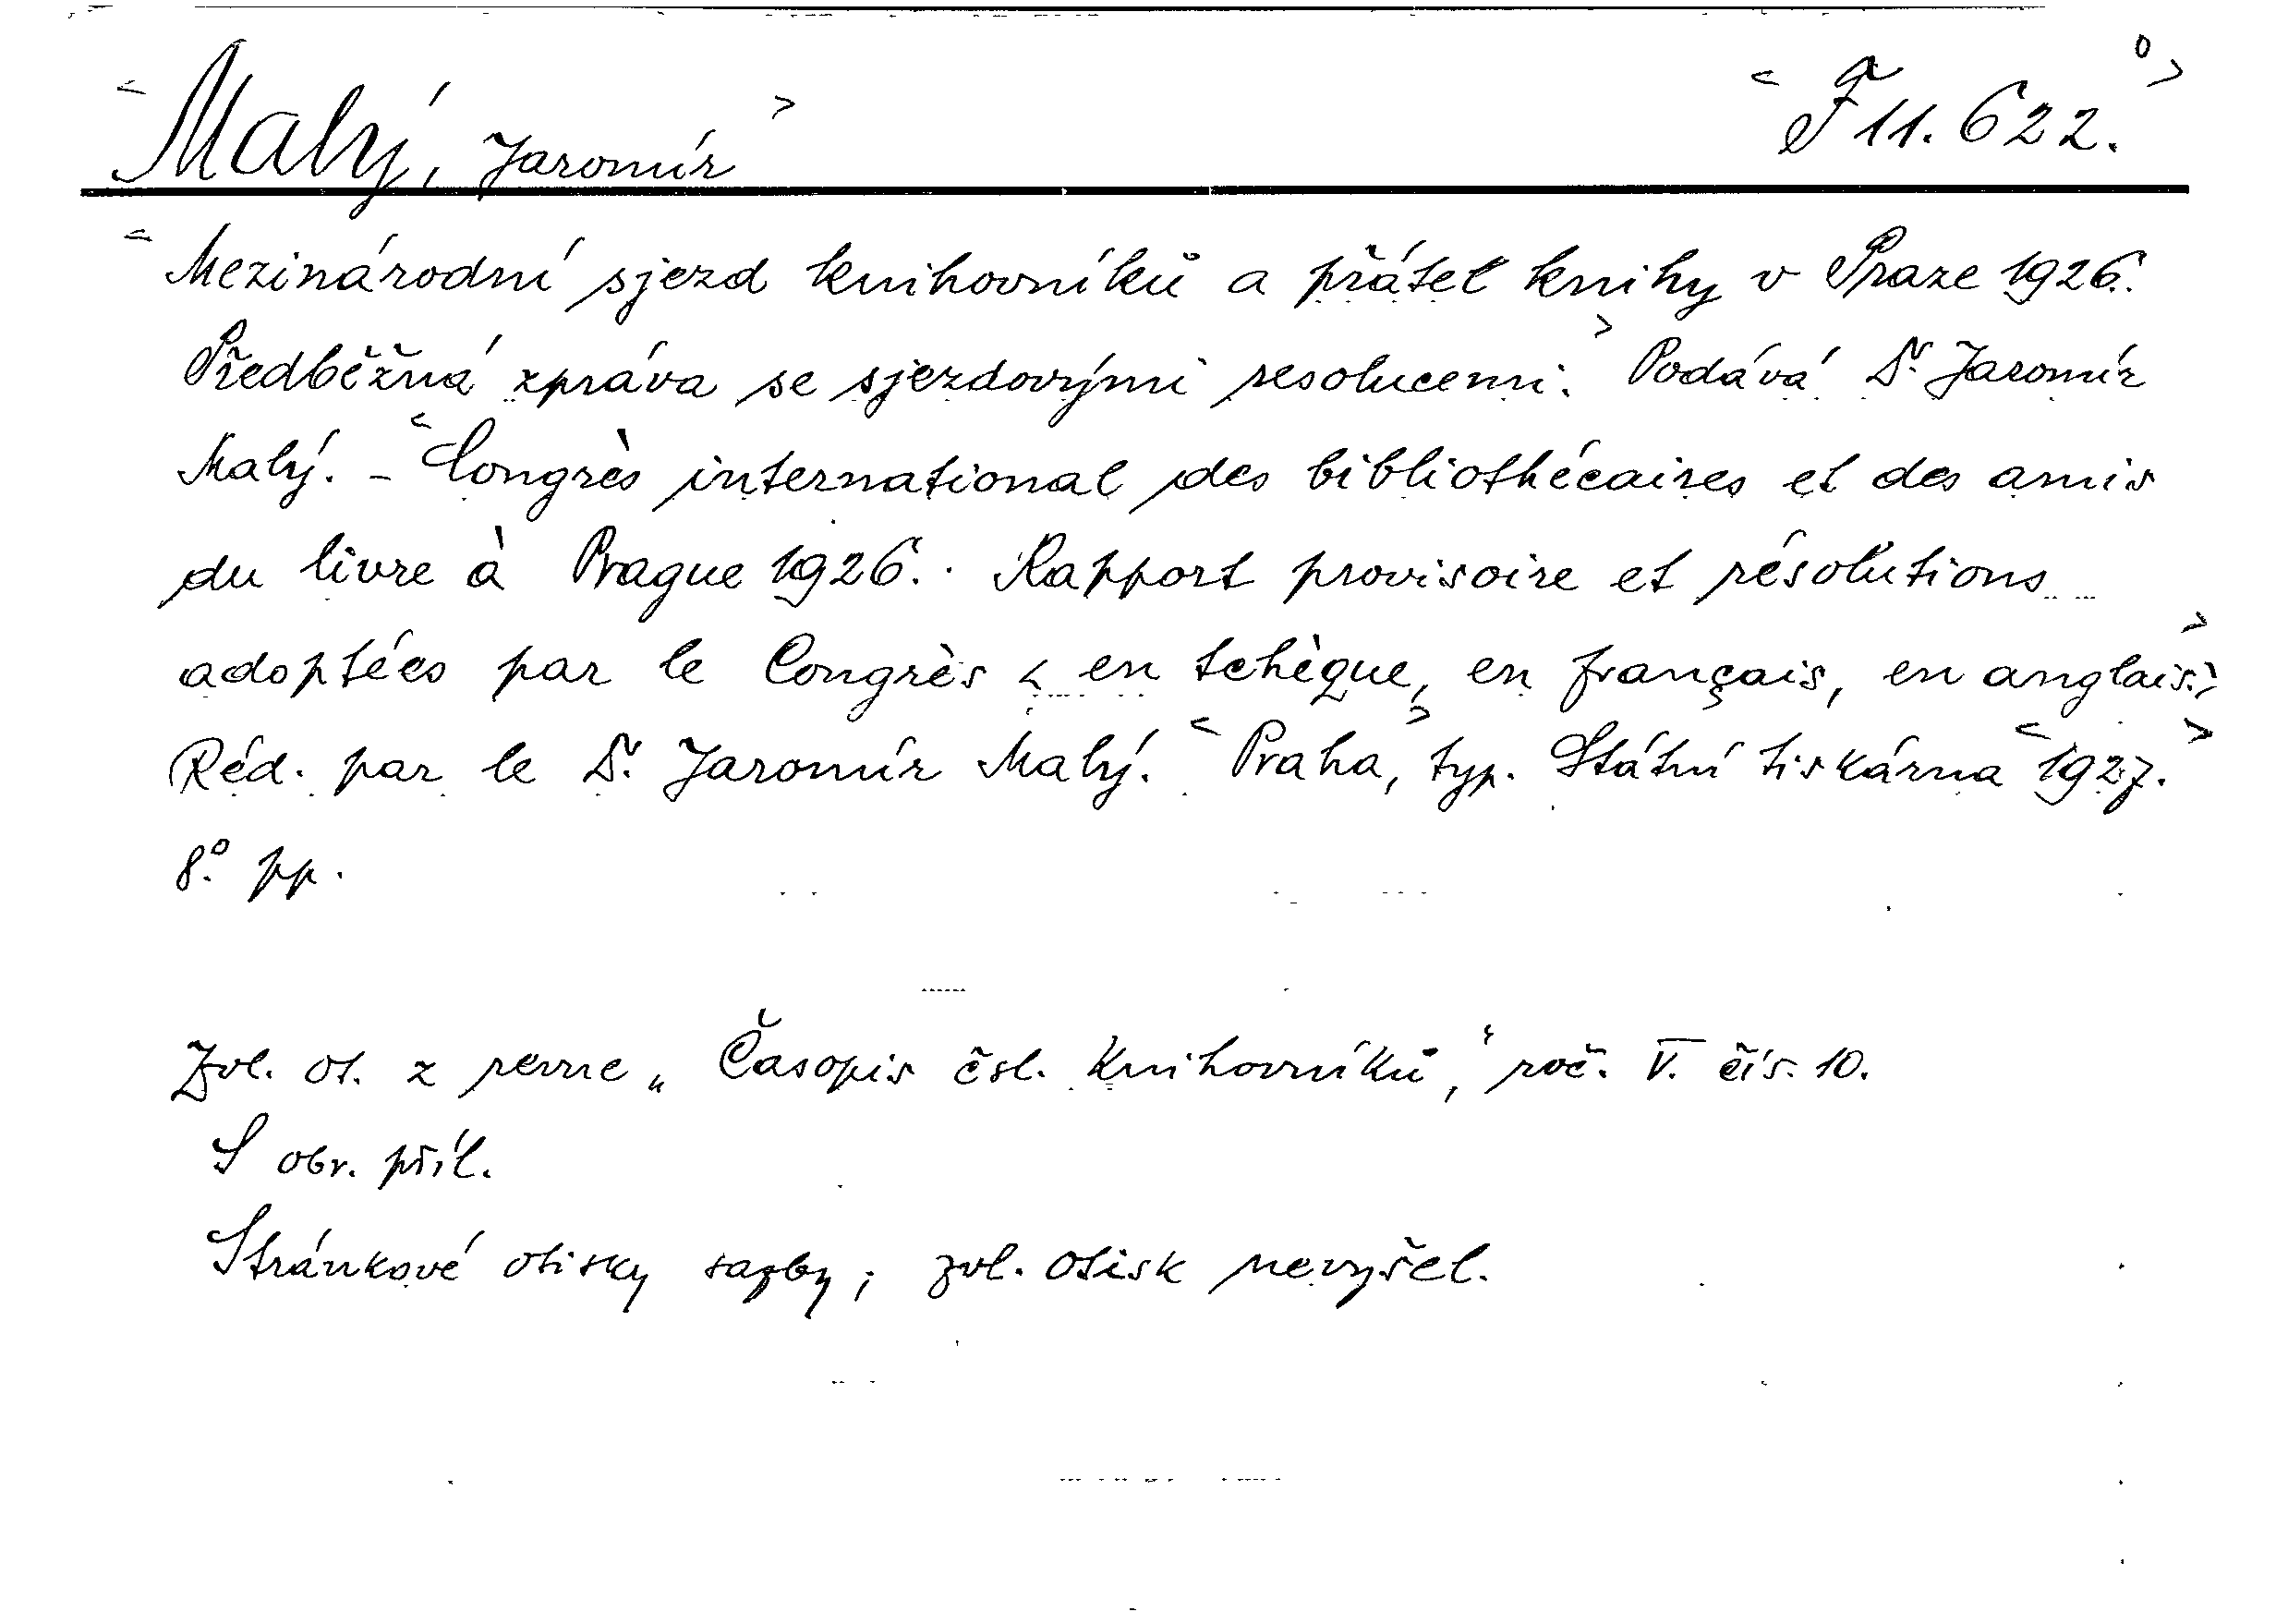 <Malý, Jaromír> <F 11.622.°>
<Mezinárodní sjezd knihovníků a přátel knihy v Praze 1926.
Předběžná zpráva se sjezdovými resolucemi.> Podává Dr. Jaromír
Malý. - <Congrès international des bibliothécaires et des amis
du livre à Prague 1926. Rapport provisoire et résolutions
adoptées par le Congrès < en tchèque, en français, en anglais.>>
Réd. par le Dr. Jaromír Malý. <Praha,> typ. Státní tiskárna <1927.>
8.° pp.
Zvl. ot. z revue „Časopis čsl. knihovníků,“ roč. V. čís. 10.
S obr. příl.
Stránkové otisky sazby; zvl. otisk nevyšel.